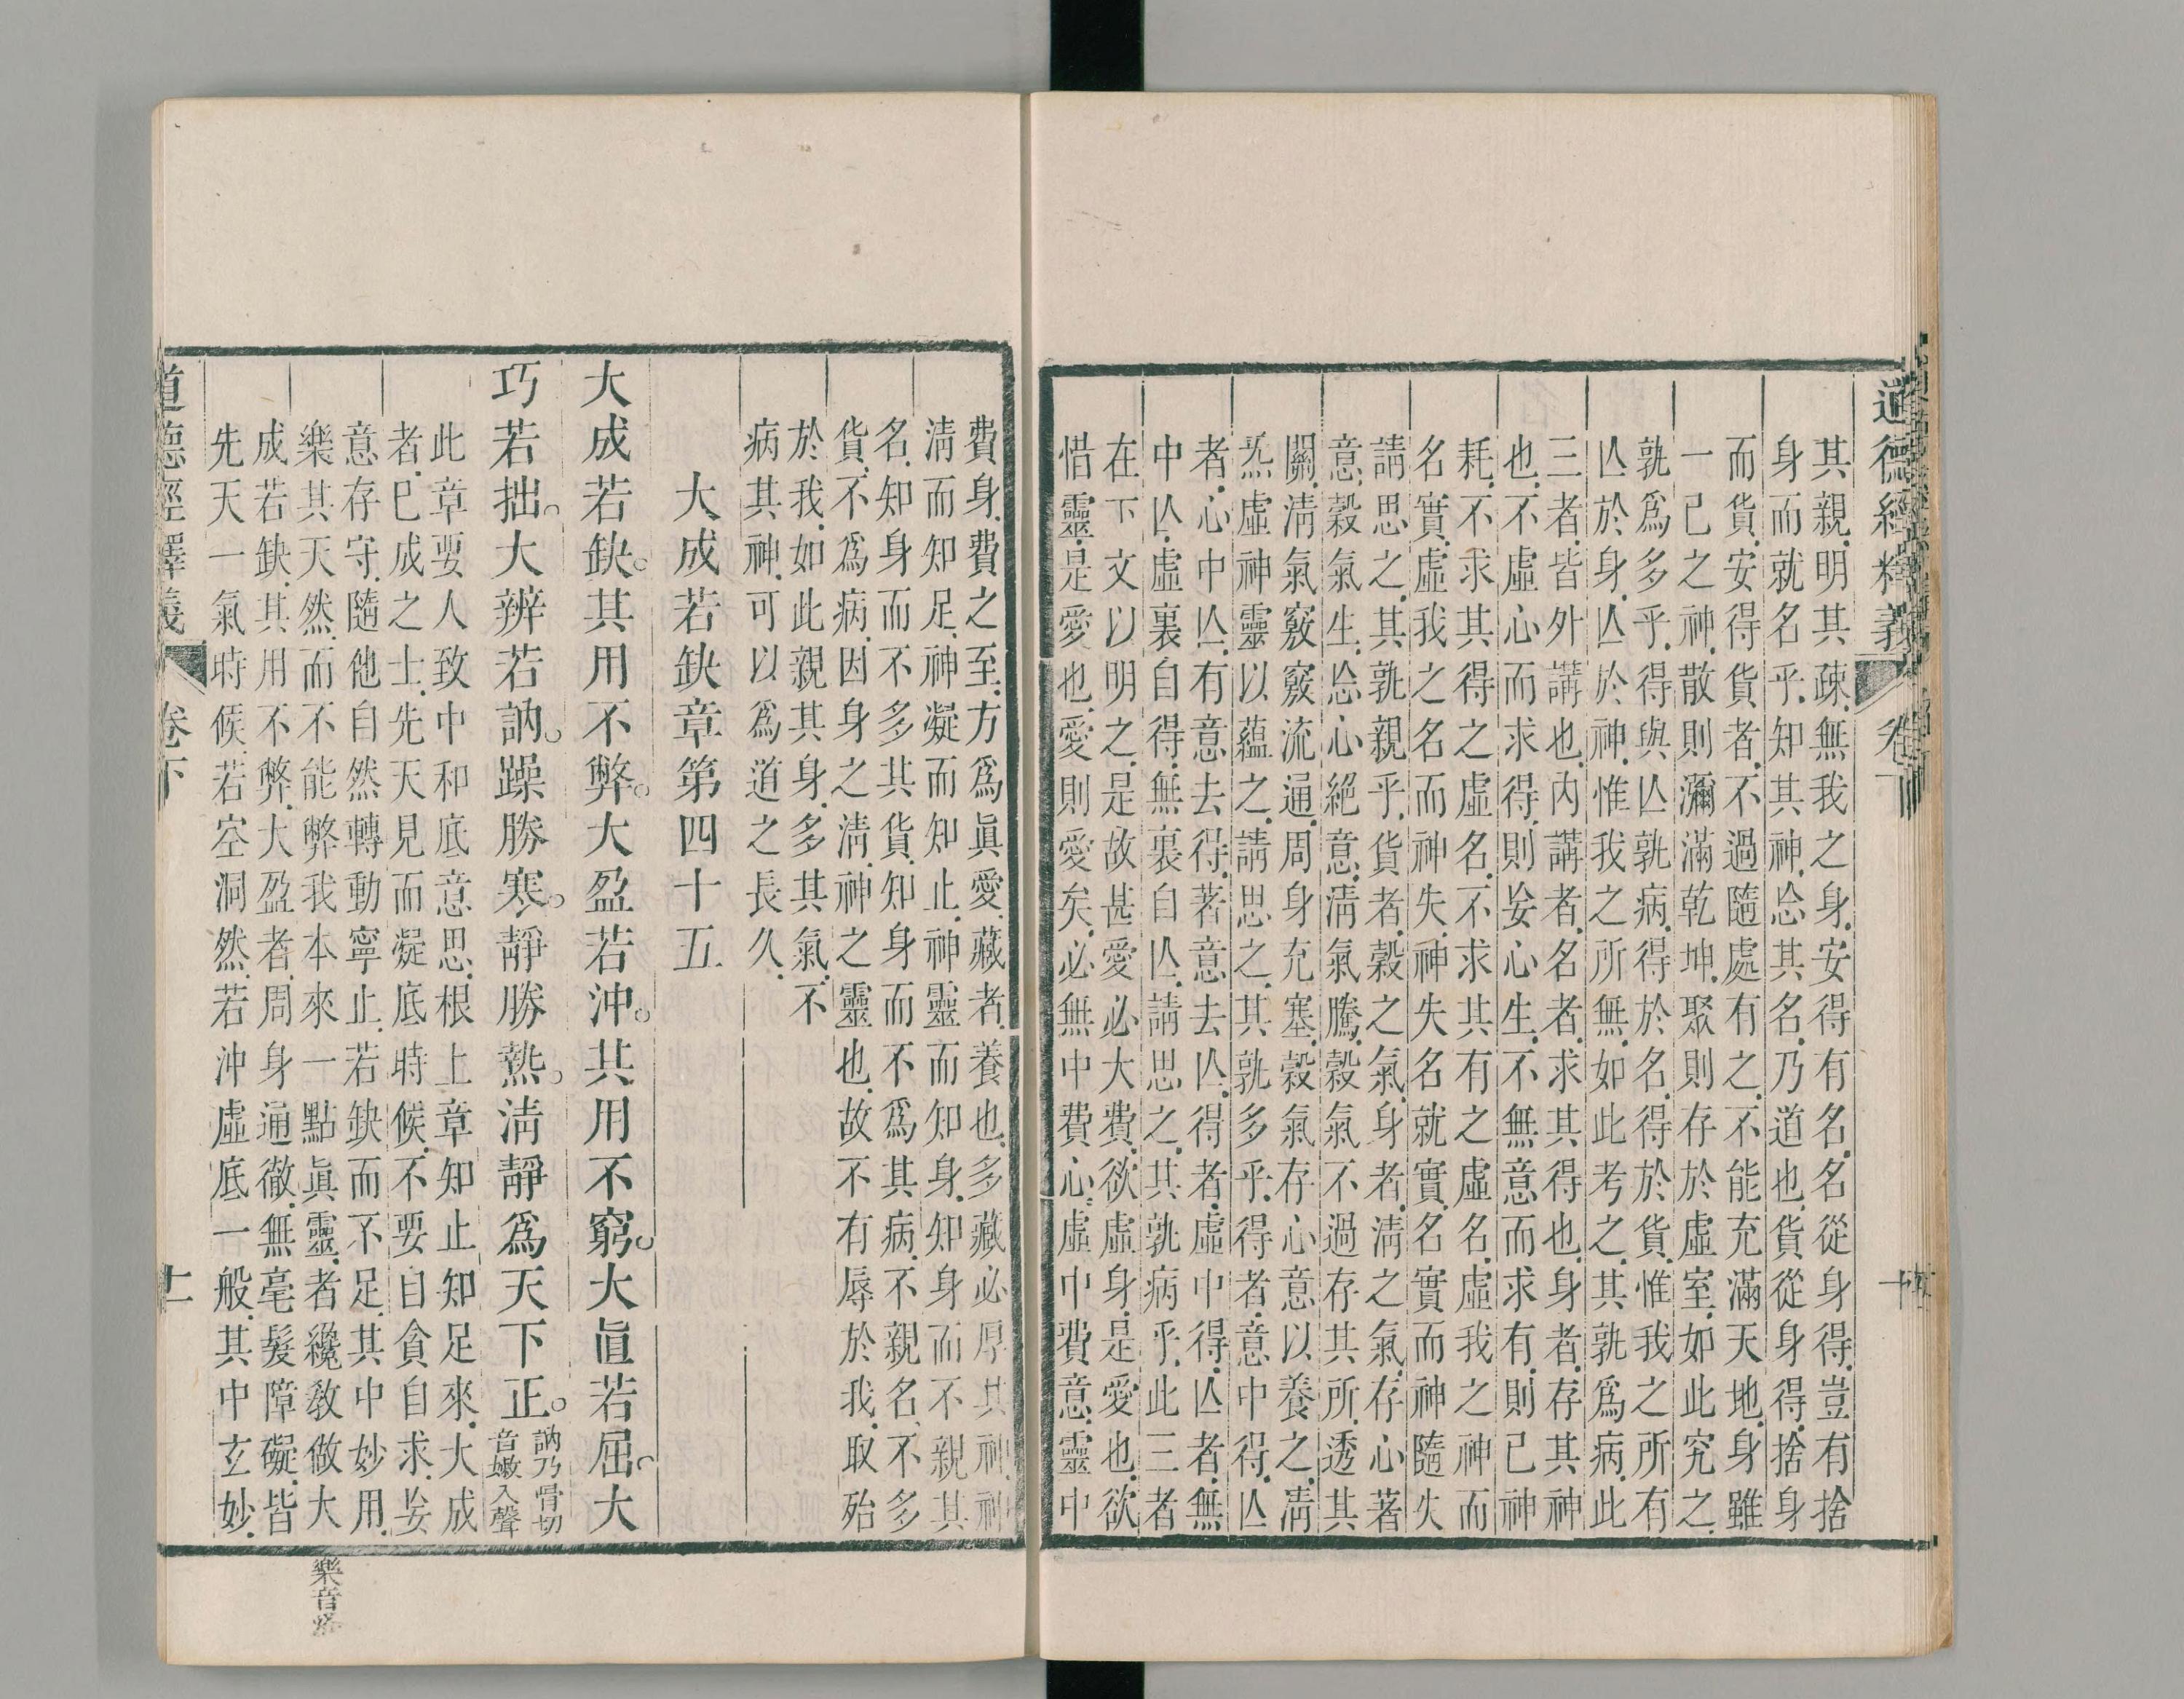 道德經釋義 卷下
其親.明其疎.無我之身.安得有名.名從身得.豈有捨
身而就名乎.知其神.忩其名.乃道也.貨從身得.捨身
而貨.安得貨者.不過隨處有之.不能充滿天地.身雖
一已之神.散則瀰滿乾坤.聚則存於虛室.如此究之.
孰爲多乎.得與亾孰病.得於名.得於貨.惟我之所有
亾於身.亾於神.惟我之所無.如此考之.其孰爲病.此
三者.皆外講也.內講者.名者.求其得也.身者.存其神
也.不虛心而求得.則妄心生.不無意而求有.則已神
耗.不求其得之虛名.不求其有之虛名.虛我之神而
名實.虛我之名而神失.神失名就實.名實而神隨失
請思之.其孰親乎.貨者.穀之氣.身者.清之氣.存心著
意.穀氣生.忩心絕意.清氣騰.穀氣不過存其所.透其
關.清氣竅竅流通.周身充塞.穀氣存心意以養之.清
炁虛神靈以蘊之.請思之.其孰多乎.得者.意中得.亾
者.心中亾.有意去得.著意去亾.得者.虛中得.亾者.無
中亾.虛裏自得.無裏自亾.請思之.其孰病乎.此三者
在下文以明之.是故甚愛必大費.欲虛身.是愛也.欲
惜靈.是愛也.愛則愛矣.必無中費心.虛中費意.靈中
費身.費之至.方爲眞愛.藏者.養也.多藏必厚其神.神
清而知足.神凝而知止.神靈而知身.知身而不親其
名.知身而不多其貨.知身而不爲其病.不親名.不多
貨.不爲病.因身之清.神之靈也.故不有辱於我.取殆
於我.如此親其身.多其氣.不
病其神.可以爲道之長久.
大成若缺章第四十五
大成若缺。其用不弊。大盈若沖。其用不窮。大直若屈。大
巧若拙。大辨若訥。躁勝寒。靜勝熱。清靜爲天下正。訥乃骨切音嫩入聲
此章要人致中和底意思.根上章知止知足來.大成
者.已成之士.先天見而凝底時候.不要自貪自求.妄
意存守.隨他自然轉動寧止.若缺而不足.其中妙用.
樂其天然.而不能弊我本來一點眞靈.者纔敎做大
成若缺.其用不弊.大盈者.周身通徹.無毫髮障礙.皆
先天一氣時候.若空洞然.若沖虛底一般.其中玄妙.
樂音
道德經釋義 卷下 十一